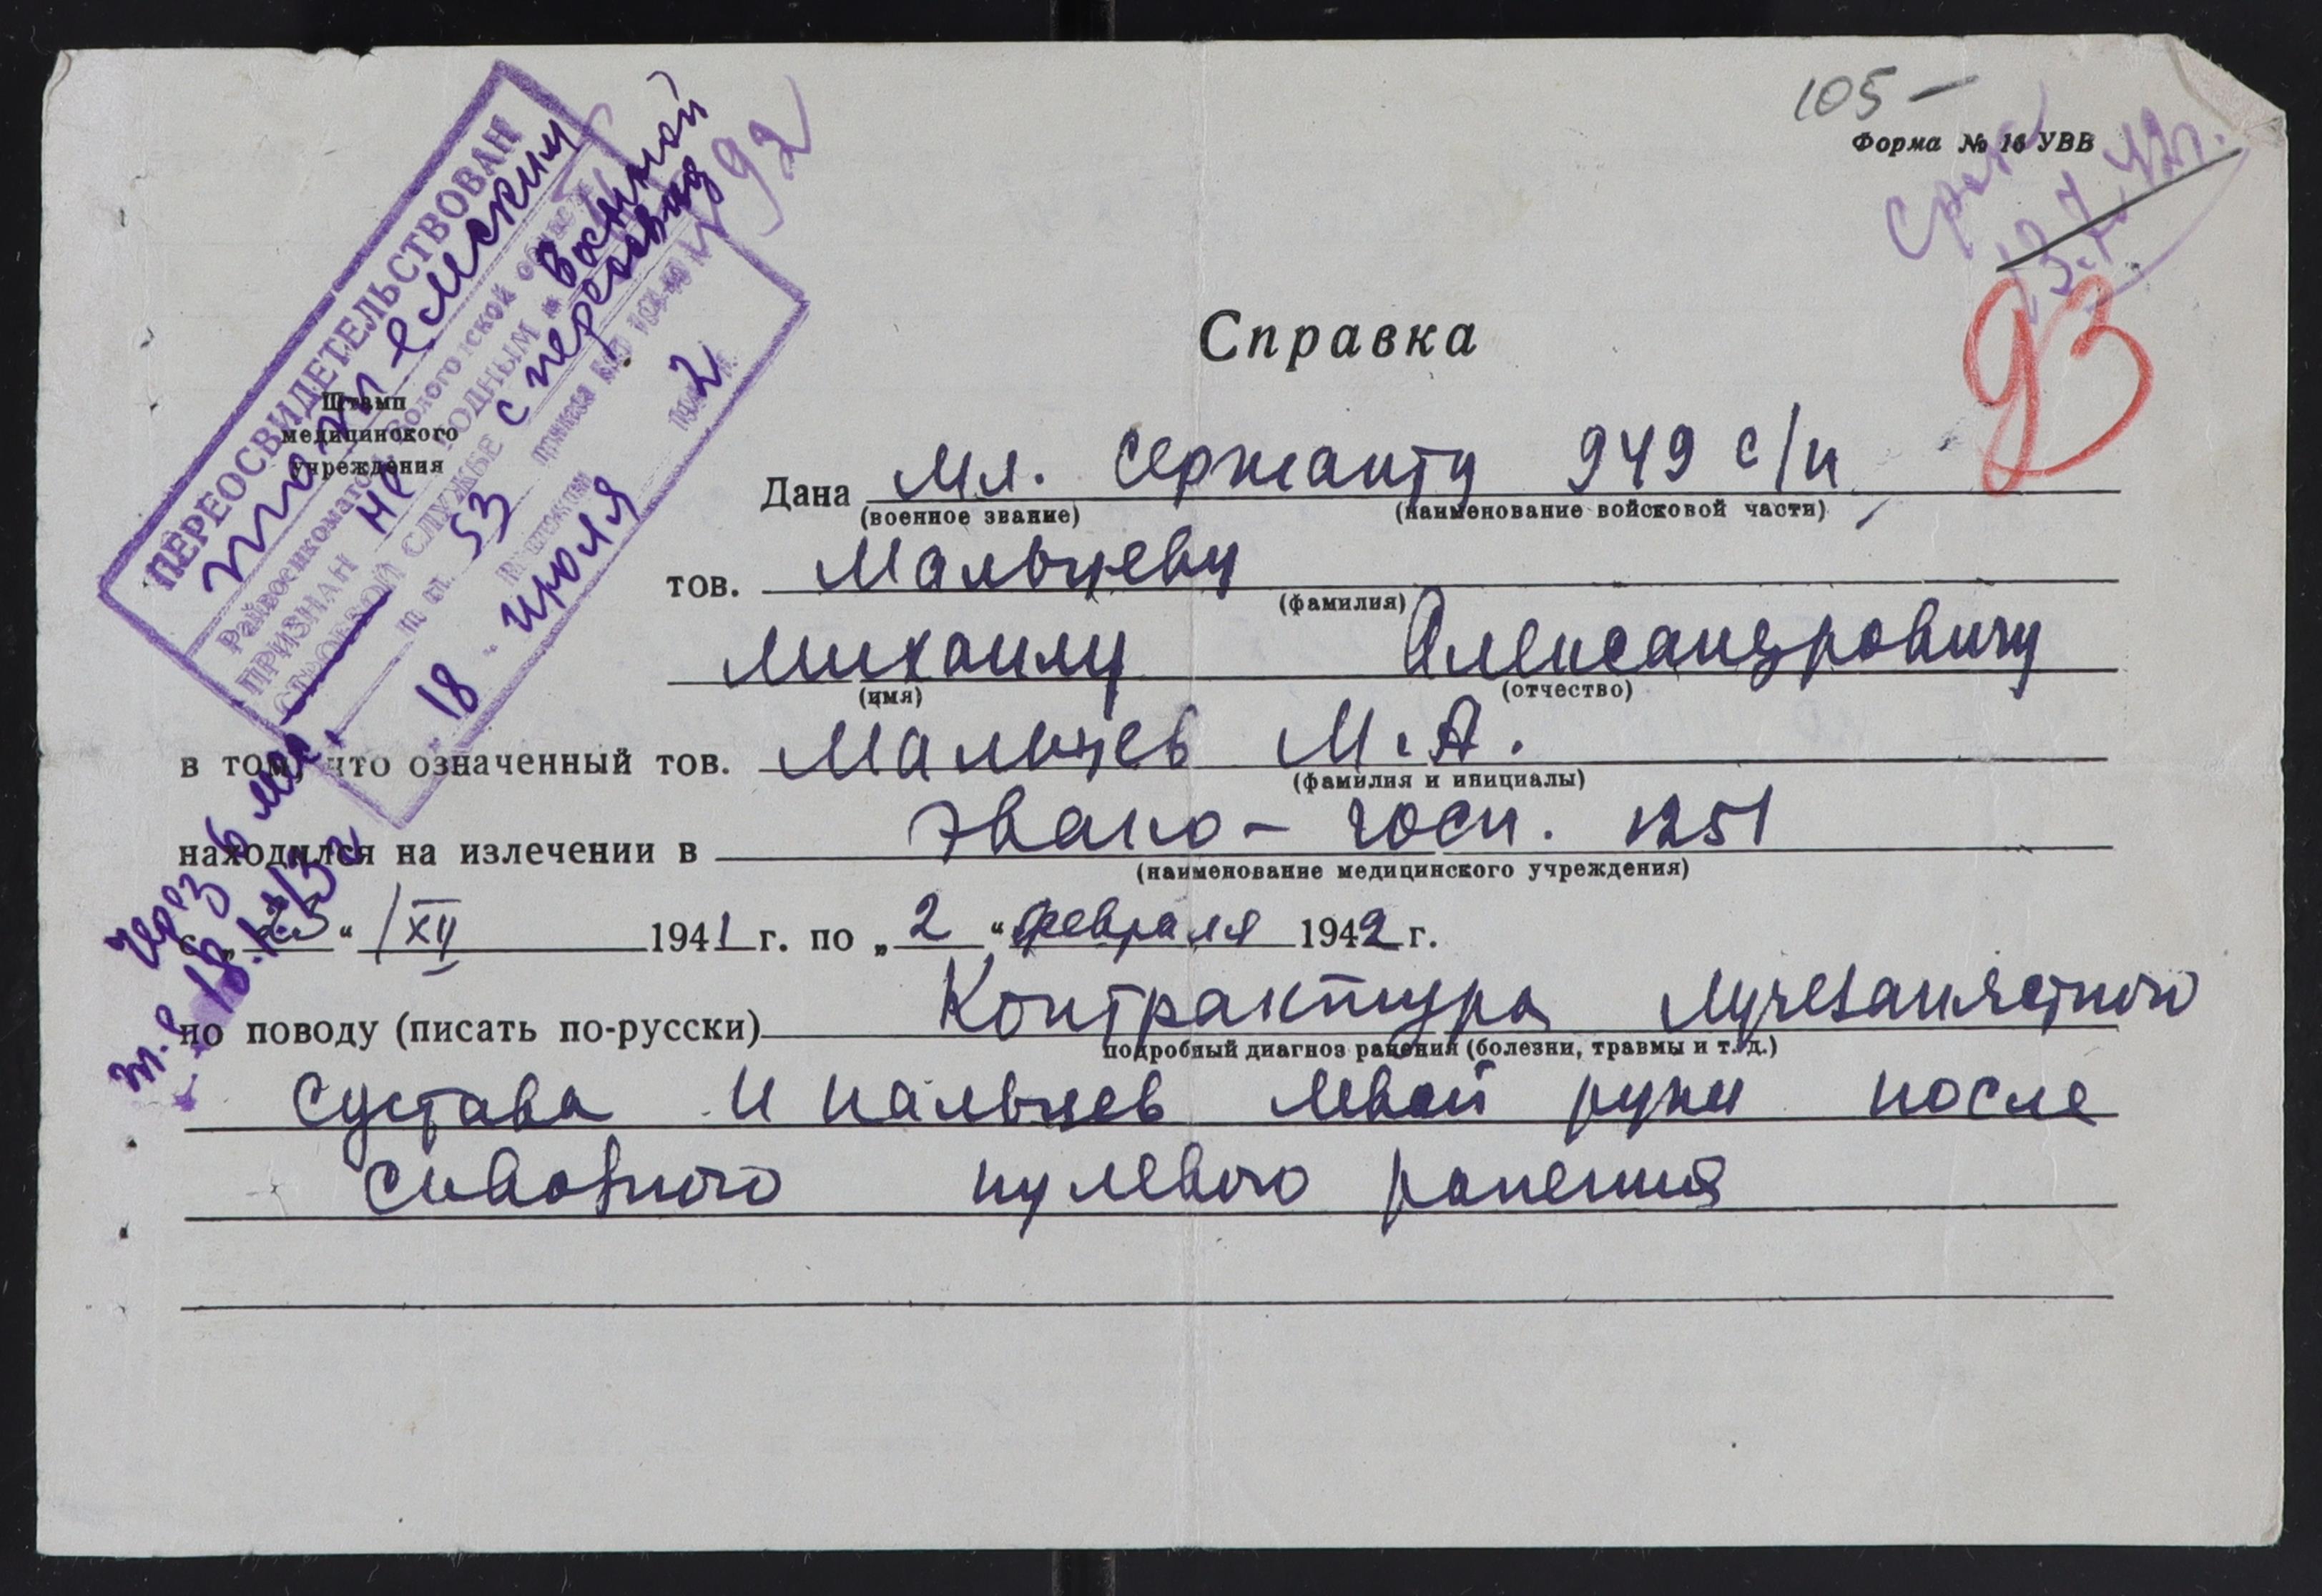 105 –
Форма № 16 УВВ
Срок
13.7.42г.
93
92
ПЕРЕОСВИДЕТЕЛЬСТВОВАН
Тотемским
Райвоенкоматом Вологодской области
ПРИЗНАН не ГОДНЫМ к военной
СТРОЕВОЙ СЛУЖБЕ с переосвид
по ст. 53 приказа НКО
18 " июля 1942 г.
через 6 мес.
т.е. 18.1.43 г
Штамп
медицинского
учреждения
Справка
Дана Мл. Сержанту 949 с/п
(военное звание) (наименование войсковой части)
тов. Мальцеву
(фамилия)
Михаилу Александровичу
(имя) (отчество)
в том, что означенный тов. Мальцев М.А.
(фамилия и инициалы)
находился на излечении в Эвако – госп. 1251
(наименование медицинского учреждения)
с „ 25 “ / XII 1941 г. по „ 2 “ февраля 1942 г.
по поводу (писать по-русски) Контрактура лучезапястного
подробный диагноз ранения (болезни, травмы и т. д.)
сустава и пальцев левой руки после
сквозного пулевого ранения